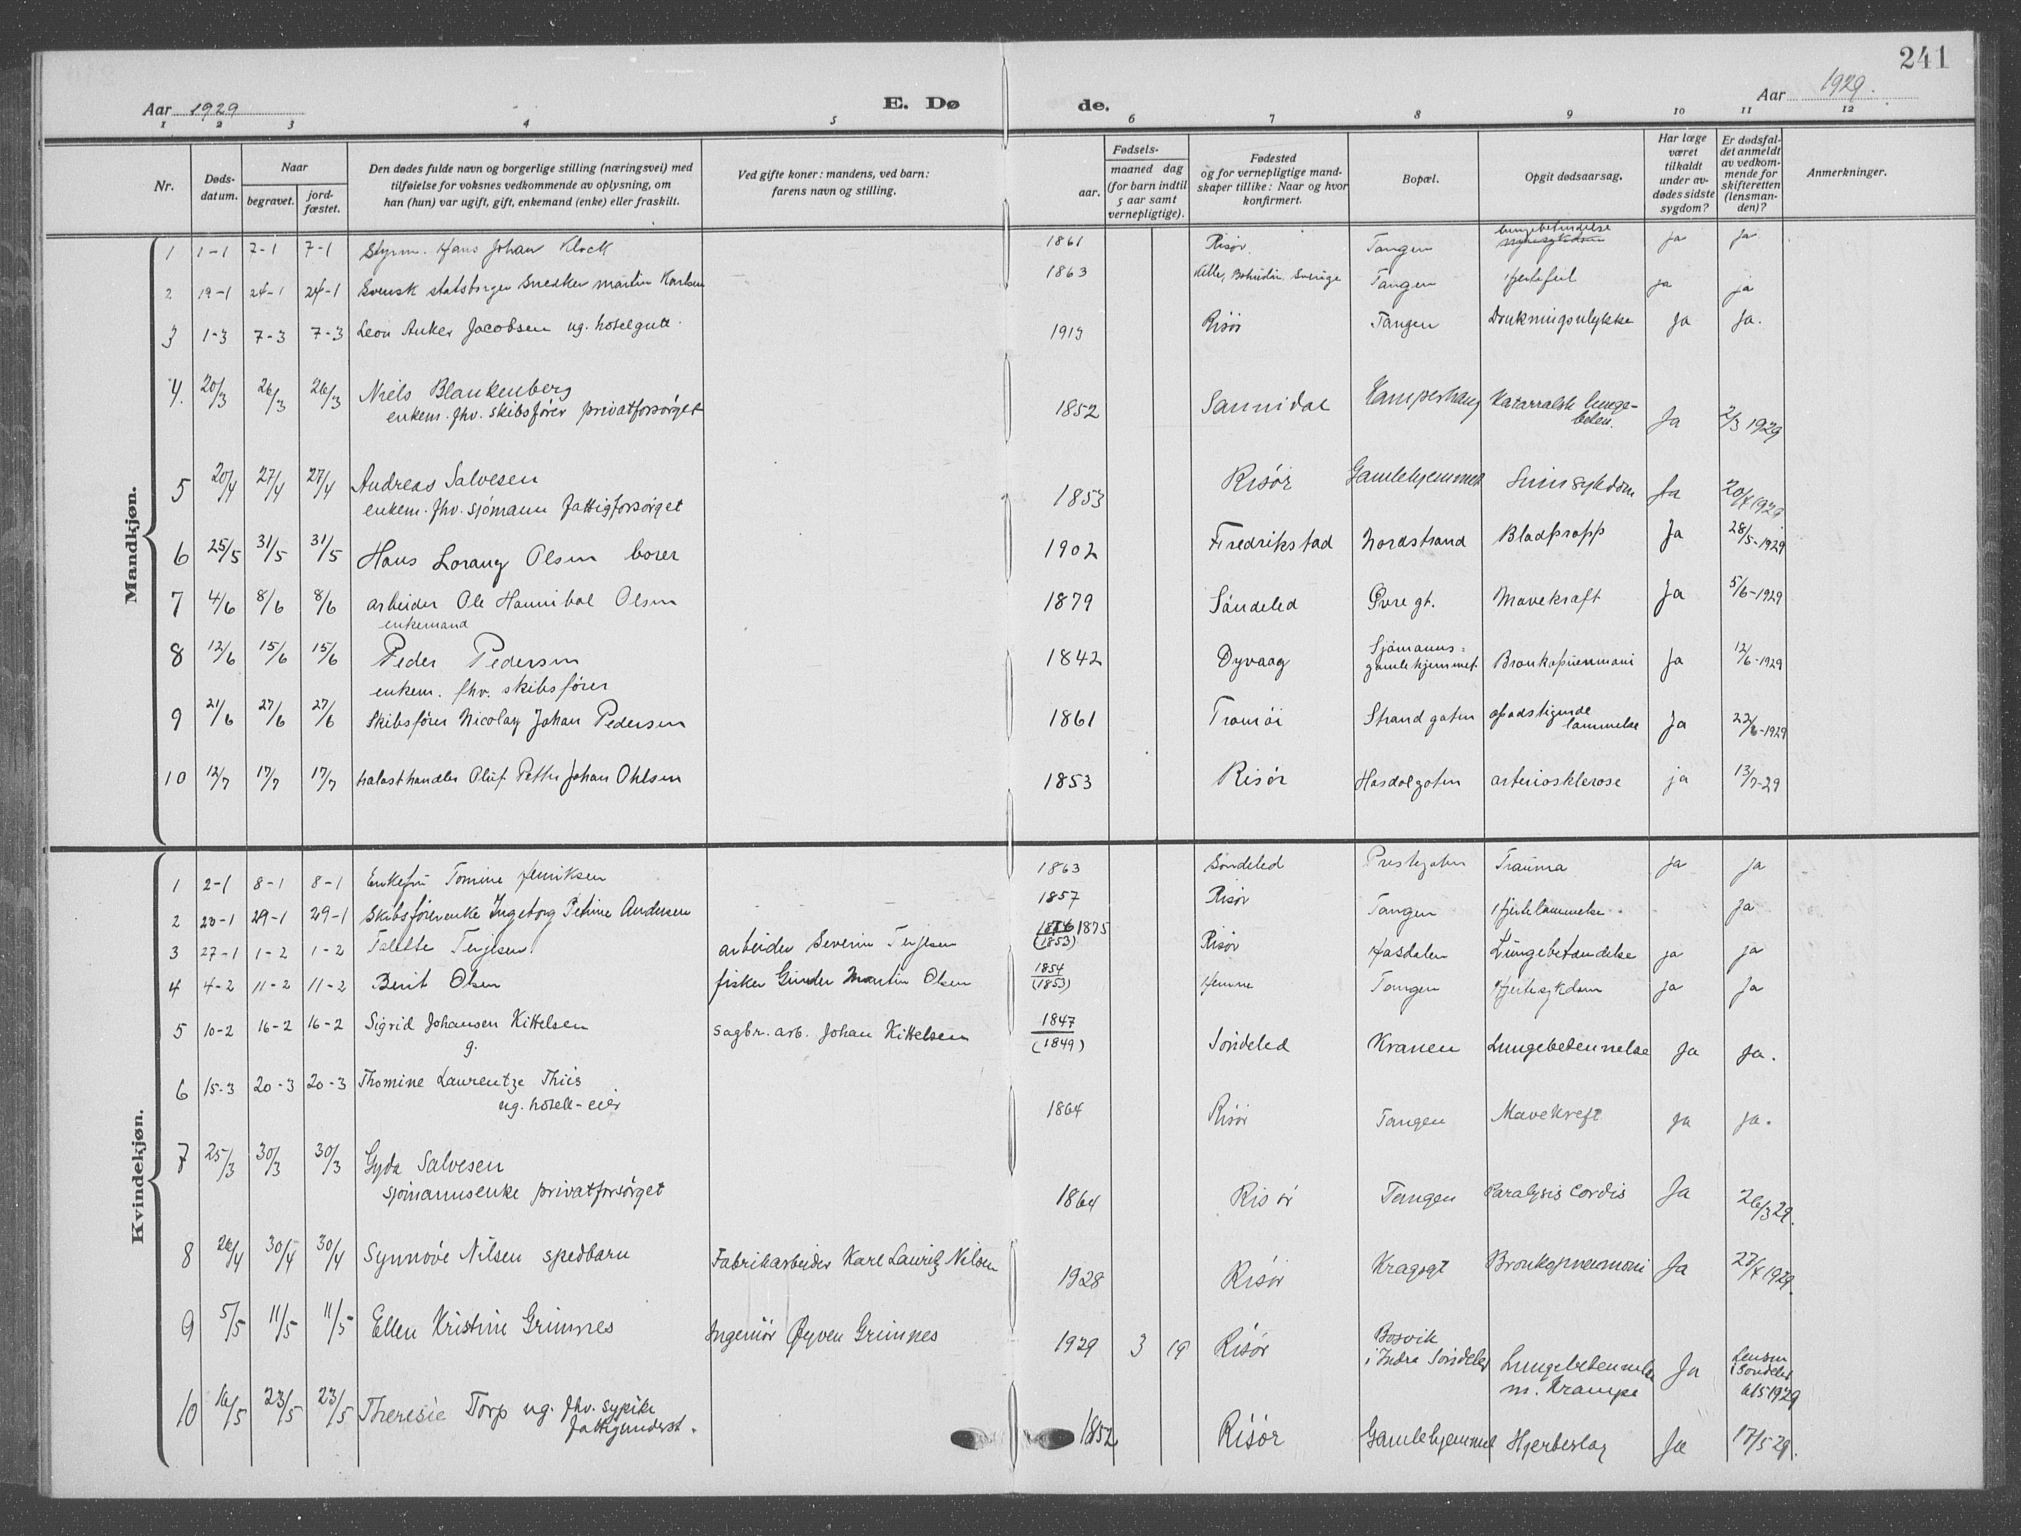 241
Aar 1929
E. Dø
de.
Aar 1929.
1 2 3 4 5 6 7 8 9 10 11 12
Nr.
Døds-
datum.
Naar
begravet.
jord-
fæstet.
Den dødes fulde navn og borgerlige stilling (næringsvei) med
tilføielse for voksnes vedkommende av oplysning, om
han (hun) var ugift, gift, enkemand (enke) eller fraskilt.
Ved gifte koner: mandens, ved barn:
farens navn og stilling.
Fødsels-
aar.
maaned dag
(for barn indtil
5 aar samt
vernepligtige).
Fødested
og for vernepligtige mand-
skaper tillike: Naar og hvor
konfirmert.
Bopæl.
Opgit dødsaarsag.
Har læge
været
tilkaldt
under av-
dødes sidste
sygdom?
Er dødsfal-
det anmeldt
av vedkom-
mende for
skifteretten
(lensman-
den)?
Anmerkninger.
Mandkjøn.
1 1-1 7-1 7-1 Styrm. Hans Johan Klock 1861 Risør. Tangen lungebetændelse ja ja
2 19-1 24-1 24-1 Svensk statsborger Snedker Martin Karlsen 1863 Bohuslän Sverige Tangen Hjertefeil ja ja
3 1-3 7-3 7-3 Leon Anker Jacobsen ug. hotelgutt. 1913 Risör Tangen Drukningsulykke Ja Ja.
4. 20/3 26/3 26/3 Niels Blankenberg 1852 Sannidal Kamperhaug Katarralsk lunge-
enkem. fhv. skibsfører privatforsørget beten. Ja 2/3 1929
5 20/4 27/4 27/4 Andreas Salvesen 1853 Risør Gamlehjemmet Sinnsykdom Ja 20/4 1929
enkem. fhv. sjømann fattigforsørget
6 25/5 31/5 31/5 Hans Lorang Olsen borer 1902 Fredrikstad Nordstrand Blodpropp Ja 28/5-1929
7 4/6 8/6 8/6 arbeider Ole Hannibal Olsen 1879 Søndeled Øvre gt. Mavekræft Ja 5/6-1929
enkemand
8 12/6 15/6 15/6 Peder Pedersen 1842 Dyvaag Sjømanns-
gamlehjemmet Bronkopneumoni Ja 12/6-1929
enkem. fhv. skibsfører
9 21/6 27/6 27/6 Skibsfører Nicolay Johan Pedersen 1861 Tromöi Strandgaten opadstigende
lammelse Ja 22/6-1929
10 12/7 17/7 17/7 Oluf Petter Johan Ohlsen 1853 Risør Hasdalgaten arteriosklerose ja 13/7-29
Kvindekjøn.
1 2-1 8-1 8-1 Enkefru Tomine Henriksen 1863 Søndeled Prestegaten Trauma Ja Ja
2 23-1 29-1 29-1 Skibsførerenke Ingeborg Petrine Andersen 1857 Risør Tangen Hjertelammelse. Ja
3 27-1 1-2 1-2 Talette Terjesen arbeider Severin Terjesen 1875
(1853) Risør Hasdalen Lungebetændelse ja Ja
4 4-2 11-2 11-2 Berit Olsen fisker Gunder Martin Olsen 1854
(1853) Hemne Tangen Hjertesykdom Ja Ja
5 10-2 16-2 16-2 Sigrid Johansen Kittelsen sagbr. arb. Johan Kittelsen 1847
g. (1849) Søndeled Kranen Lungebetennelse Ja Ja.
6 15-3 20-3 20-3 Thomine Laurentze Thiis
ug. hotell-eier 1864 Risör Tangen Mavekreft Ja Ja.
7 25/3 30/3 30/3 Gyda Salvesen
sjømannsenke privatforsørget 1864 Risør Tangen Paralysis cordis Ja 26/3 29.
8 26/4 30/4 30/4 Synnöve Nilsen spedbarn Fabrikarbeider Karl Lauritz Nilsen 1928 Risør Kragsgt Bronkopneumoni Ja 27/4 1929.
9 5/5 11/5 11/5 Ellen Kristine Grimnes Ingeniør Øyven Grimnes 1929 3 19 Risør Bosvik
i Indre Søndeled Lungebetennelse
m. Krampe Ja Lensm
i Søndeled
6/5 1929
10 16/5 23/5 23/5 Theresie Torp ug. fhv. sypike
fattigunderst. 1852 Risør Gamlehjemmet Hjerteslag Ja 17/5 29.